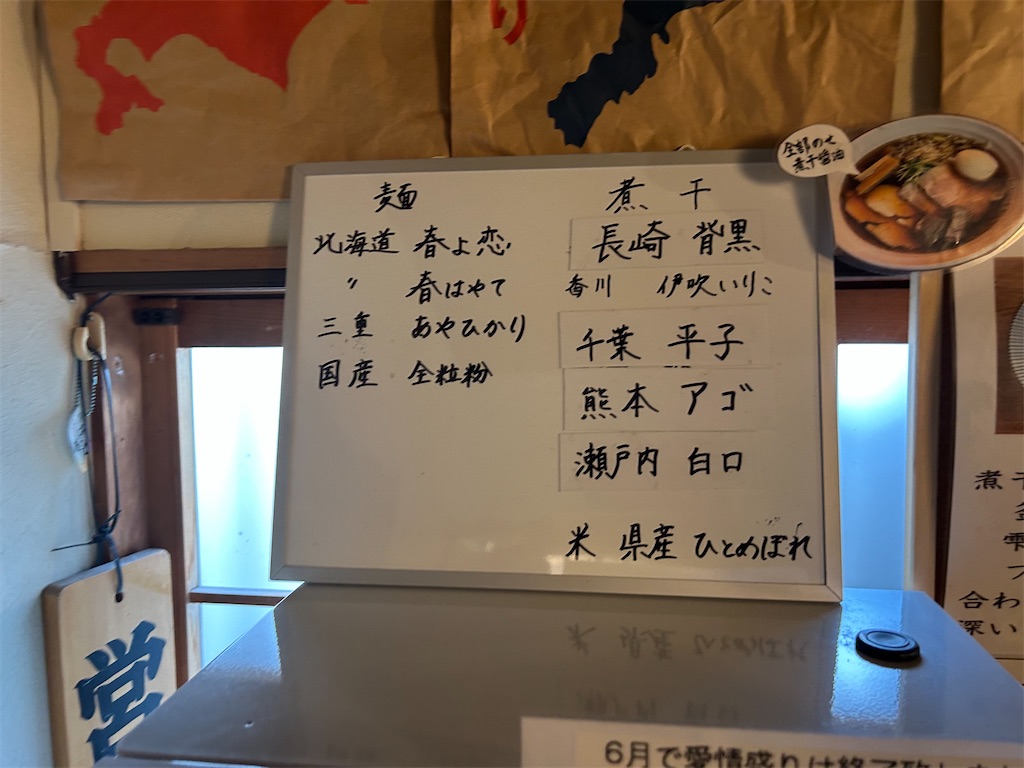 全部のせ
煮干醤油
麺
北海道 春よ恋
〃 春はやて
三重 あやひかり
国産 全粒粉
煮 干
長崎 背黒
香川 伊吹いりこ
千葉 平子
熊本 アゴ
瀬戸内 白口
米 県産 ひとめぼれ
煮干
合わ
深い
営
6月で愛情盛りは終了致しま